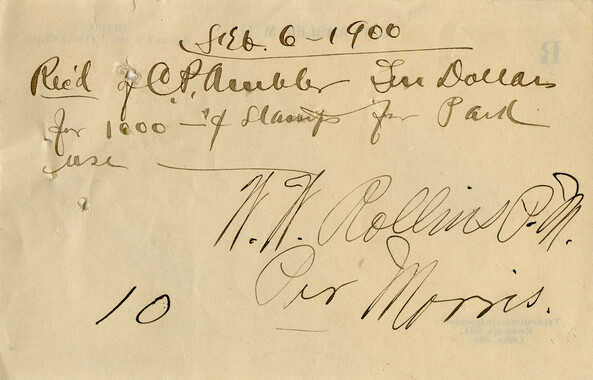 Feb. 6 - 1900
Rec'd of C. P. Ambler Ten Dollars
for 1000 - 1¢ Stamps for Park
use
W. W. Rollins P. M.
Per Morris.
10